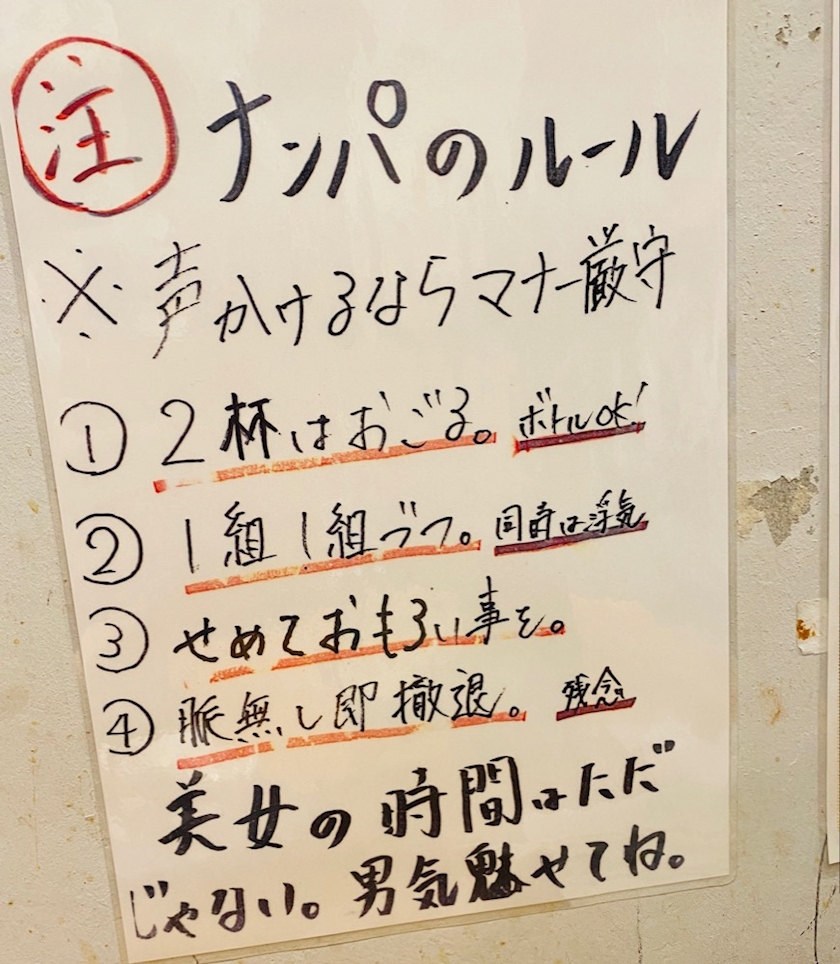 注 ナンパのルール
※声かけるならマナー厳守
① 2杯はおごる。 ボトルOK!
② 1組1組づつ。 同時は浮気
③ せめておもろい事を。
④ 脈無し即撤退。 残念
美女の時間はただ
じゃない。男気魅せてね。